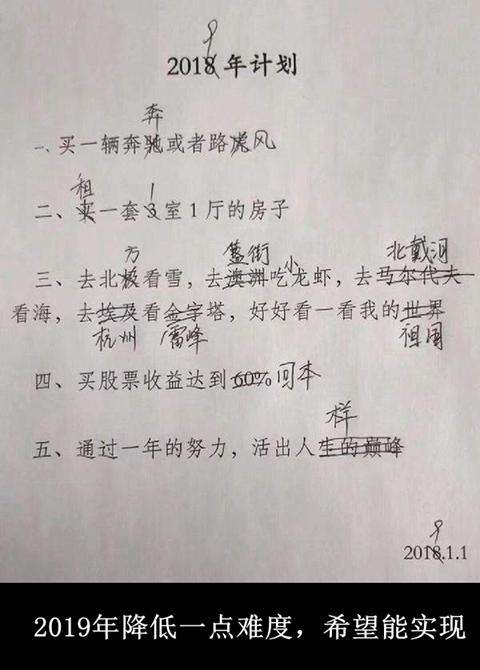 9
2018 年计划
奔
一、买一辆奔驰或者路虎风
租 1
二、买一套3室1厅的房子
方 簋街 小 北戴河
三、去北极看雪，去澳洲吃龙虾，去马尔代夫
看海，去埃及看金字塔，好好看一看我的世界
杭州 雷峰 祖国
四、买股票收益达到60%回本
样
五、通过一年的努力，活出人生的巅峰
9
2018.1.1
2019年降低一点难度，希望能实现